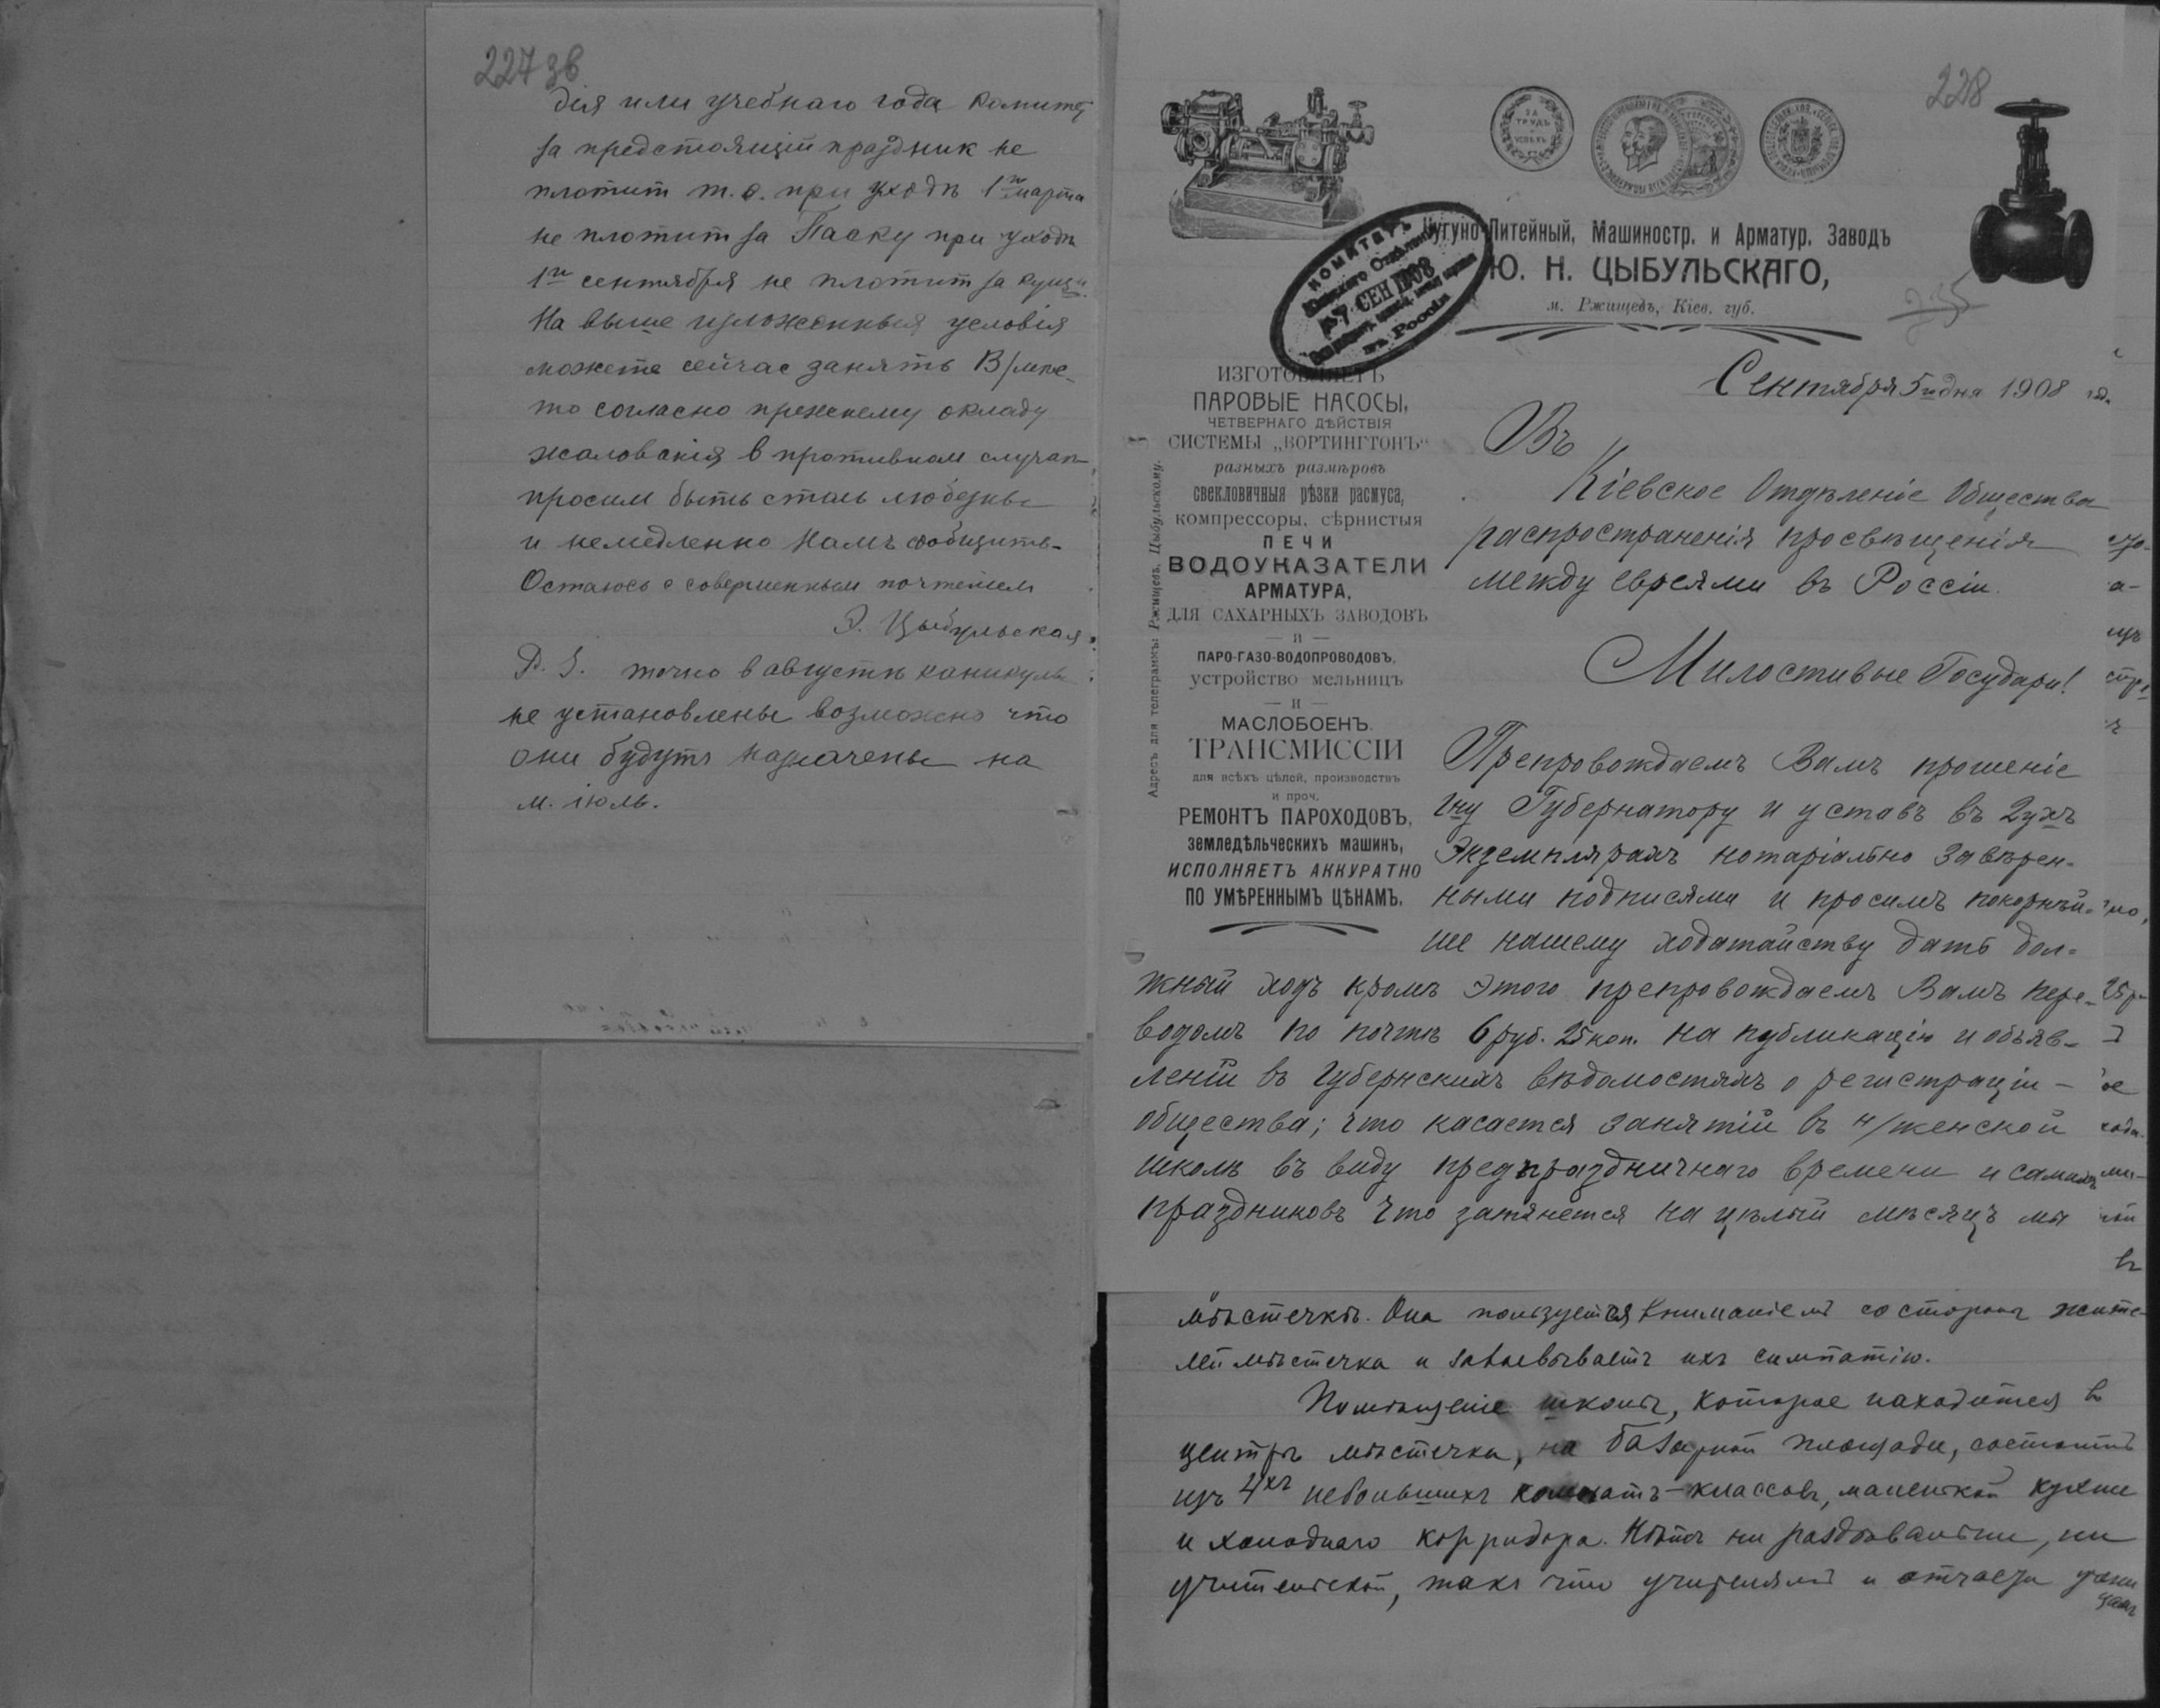 227 зв
дія или учебнаго года комитет
за предстоящій праздник не
плотит т.е. при уходѣ 1го марта
не плотит за Паску при уходѣ
1го сентября не плотит за кущи.
На выше изложенныя условія
можете сейчас занять В/мѣс-
то согласно прежнему окладу
жалованія в противном случаѣ
просим быть столь любезны
и немедленно намъ сообщить.
Остаюсь с совершенным почтеніем
Э. Цыбульская
P. S. точно в августѣ каникулы
не установлены возможно что
они будутъ назначены на
м. іюль.
228
ЗА ТРУДЪ И УСПѢХЪ
Чугуно-Литейный, Машиностр. и Арматур. Заводъ
Ю. Н. ЦЫБУЛЬСКАГО,
м. Ржищевъ, Кіев. губ.
235
КОМИТЕТЪ
Кіевскаго Отдѣленія
7 СЕН 1908
въ Россіи
Адресъ для телеграммъ: Ржищевъ, Цыбульскому.
ИЗГОТОВЛЯЕТЪ
ПАРОВЫЕ НАСОСЫ,
ЧЕТВЕРНАГО ДѢЙСТВІЯ
СИСТЕМЫ „ВОРТИНГТОНЪ"
разныхъ размѣровъ
свекловичныя рѣзки расмуса,
компрессоры, сѣрнистыя
ПЕЧИ
ВОДОУКАЗАТЕЛИ
АРМАТУРА,
ДЛЯ САХАРНЫХЪ ЗАВОДОВЪ
— И —
ПАРО-ГАЗО-ВОДОПРОВОДОВЪ,
устройство мельницъ
— И —
МАСЛОБОЕНЪ.
ТРАНСМИССІИ
для всѣхъ цѣлей, производствъ
и проч.
РЕМОНТЪ ПАРОХОДОВЪ,
земледѣльческихъ машинъ,
ИСПОЛНЯЕТЪ АККУРАТНО
ПО УМѢРЕННЫМЪ ЦѢНАМЪ.
Сентября 5го дня 1908 год.
Въ
Кіевское Отдѣленіе Общества
распространенія просвѣщенія
между евреями въ Россіи.
Милостивые Государи!
Препровождаемъ Вамъ прошеніе
Гну Губернатору и уставъ въ 2ухъ
Экземплярахъ нотаріально завѣрен-
ными подписями и просимъ покорнѣй-
ше нашему ходатайству дать дол-
жный ходъ кромѣ этого препровождаемъ Вамъ пере-
водомъ по почтѣ 6 руб. 25 коп. на публикацію и объяв-
леній въ Губернскихъ вѣдомостяхъ о регистраціи
общества; что касается занятій въ н/женской
школѣ въ виду предпраздничнаго времени и самыхъ
праздниковъ что затянется на цѣлый мѣсяцъ мы
мѣстечкѣ. Она пользуется вниманіемъ со стороны жите-
лей мѣстечка и завоевываетъ ихъ симпатію.
Помѣщеніе школы, которое находится въ
центрѣ мѣстечка, на базарной площади, состоитъ
изъ 4хъ небольшихъ комнатъ-классовъ, маленькой кухни
и холоднаго корридора. Нѣтъ ни раздѣвальни, ни
учительской, такъ что учителямъ и отчасти учени
цамъ